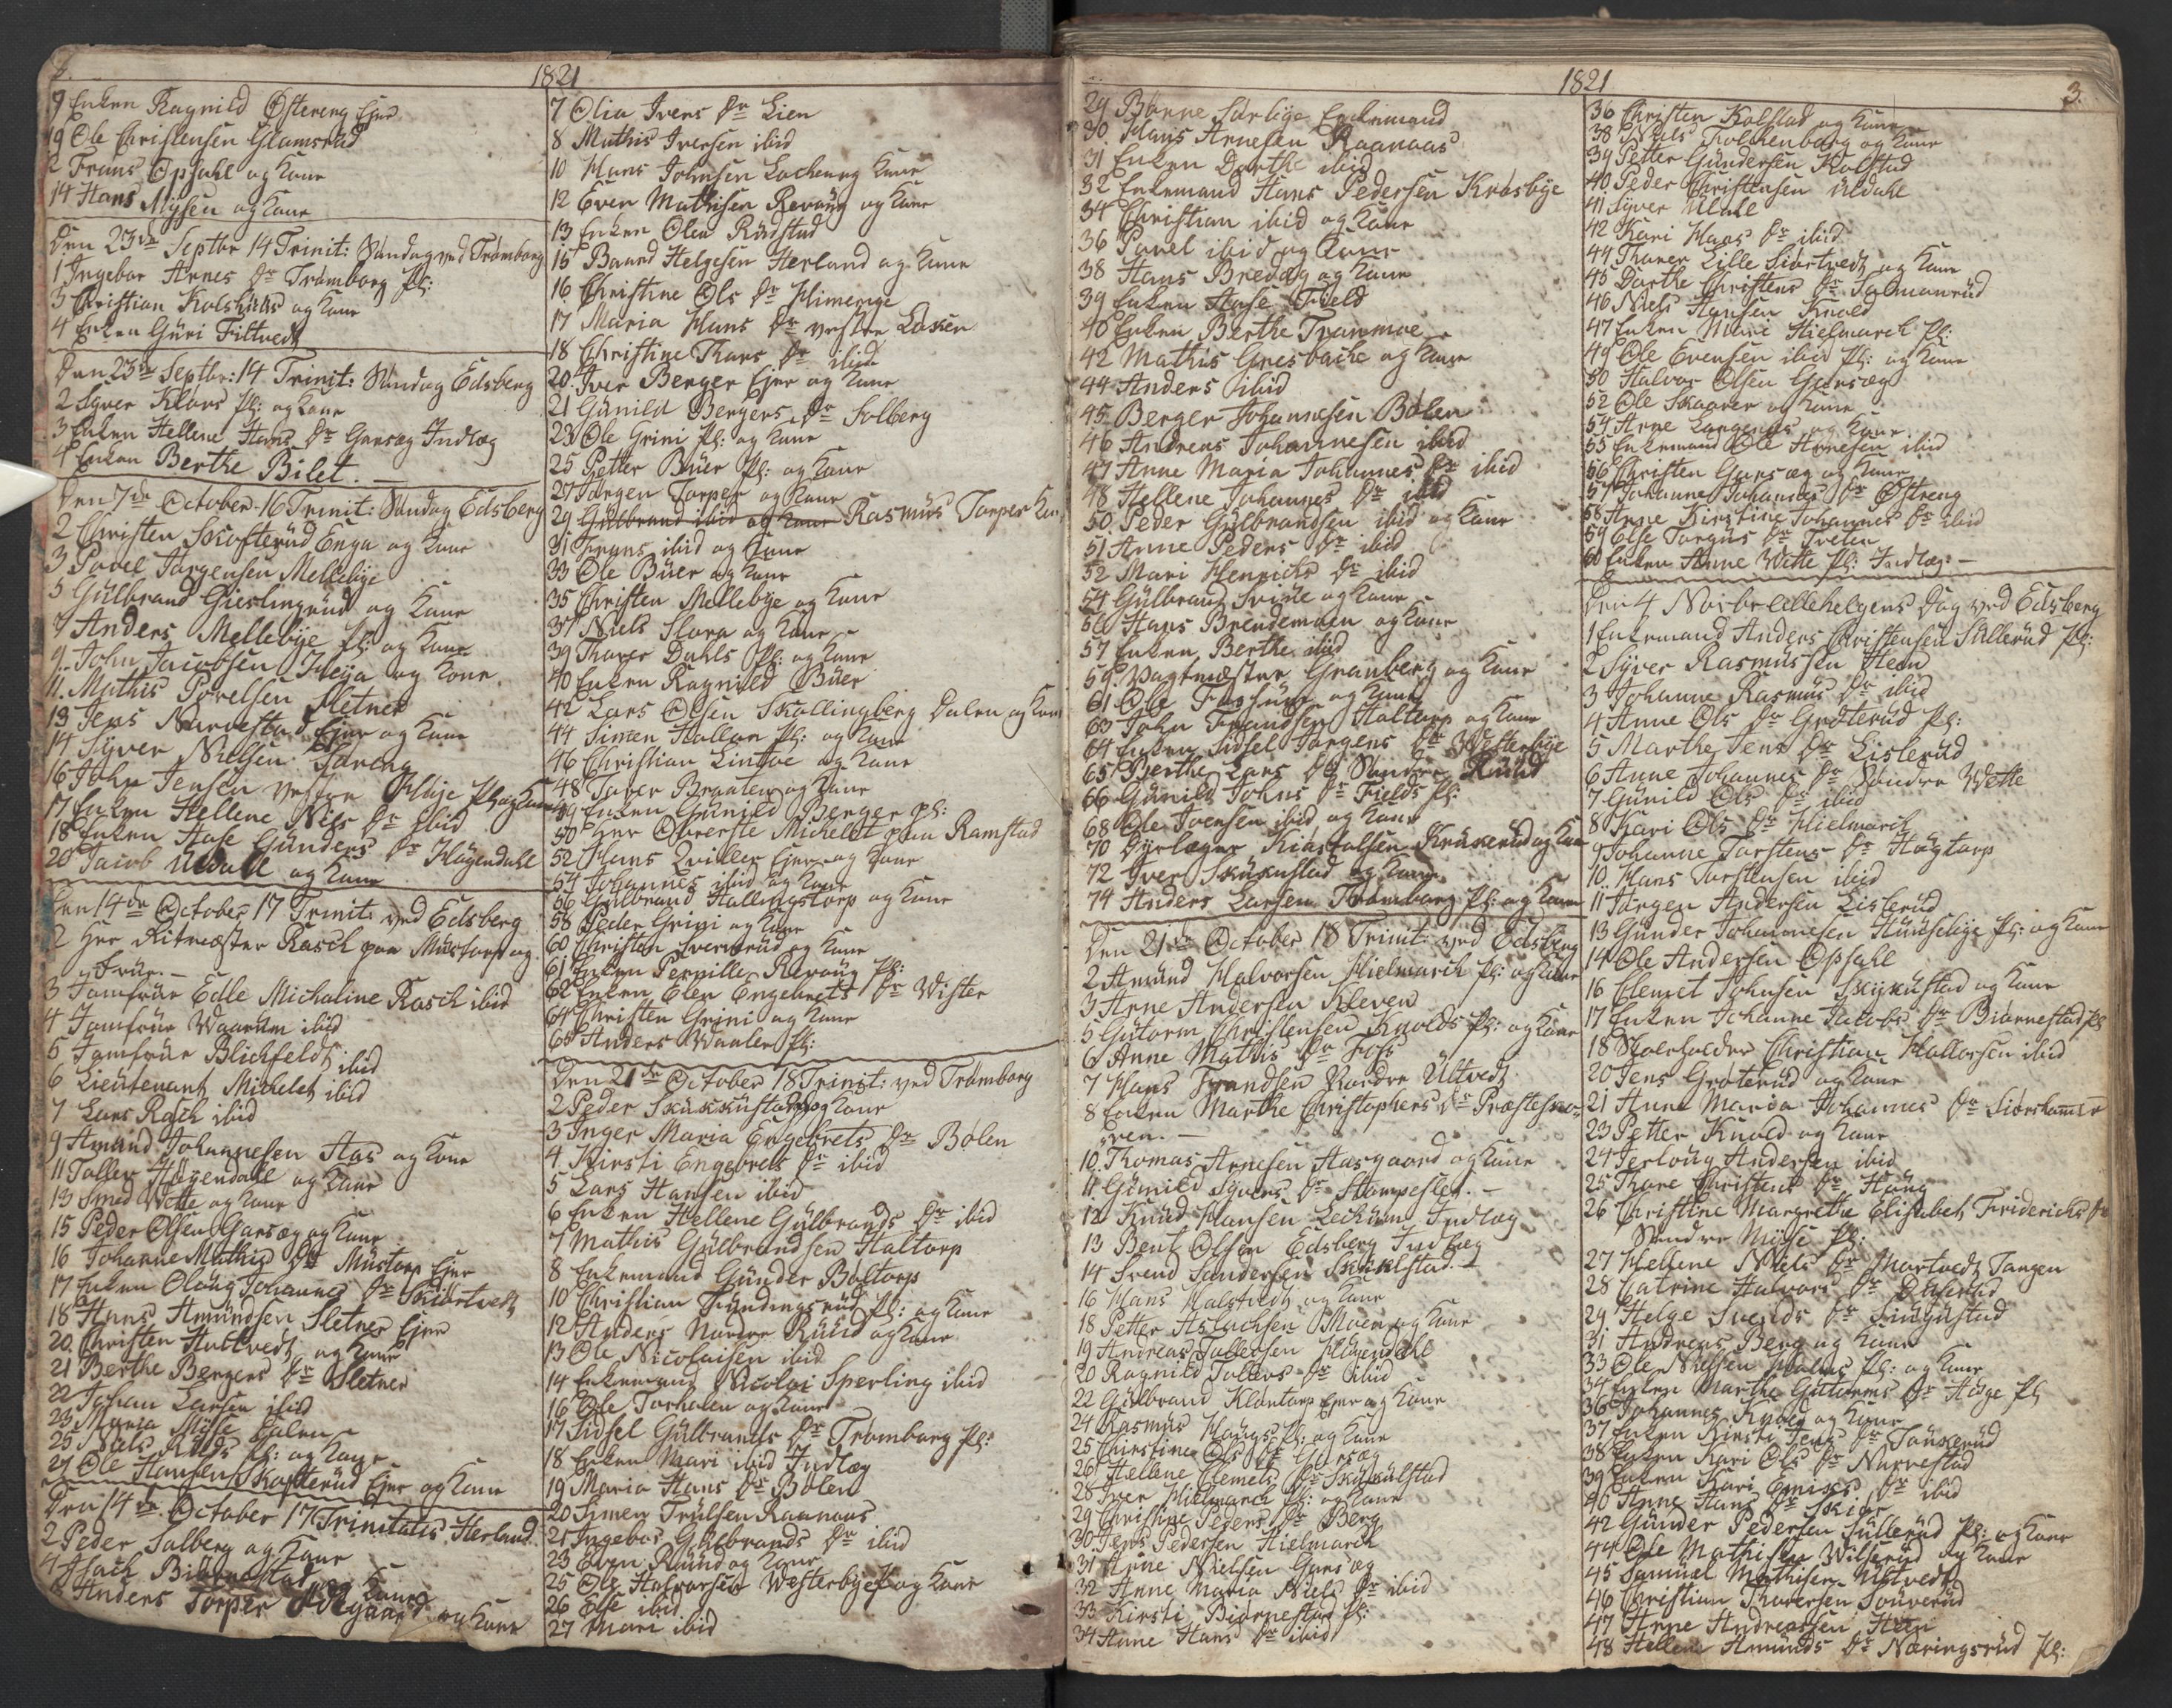 2.
1821
9 Enken Ragnild Østereng Ejer
19 Ole Christensen Glamsrud
2 Frans Opsahl og Kone
14 Hans Mysen og Kone
Den 23de Septbr 14 Trinit: Søndag ved Trømborg
1 Ingebor Arnes Dr Trømborg Pl:
3 Christian Kolshuus og Kone
4 Enken Guri Filtvedt
Den 23de Septbr: 14 Trinit: Søndag Edsberg
2 Syver Klovs Pl: og Kone
3 Enken Hellene Hans Dr Garsæg Indlæg
4 Enken Berthe Bilet.
Den 7de October 16 Trinit: Søndag Edsberg
2 Christen Skofterud Enga og Kone
3 Povel Jørgensen Mellebye
5 Gulbrand Gieslingrud og Kone
7 Anders Mellebye Pl: og Kone
9 John Jacobsen Heya og Kone
11 Mathis Povelsen Sletner
13 Jens Narvestad Ejer og Kone
14 Syver Nielsen
16 John Jensen vestre Pl: og Kone
17 Enken Hellene Niels Dr ibid
18 Enken Aase Gunders Dr Høgendahl
20 Jacob Udahl og Kone
Den 14de October 17 Trinit: ved Edsberg
2 Herr Ritmæster Rasch paa Mustorp og
Frue.
3 Jomfrue Edle Micheline Rasch ibid
4 Jomfrue Waarum ibid
5 Jomfrue Blichfeldt ibid
6 Lieutenant Michelet ibid
7 Lars Rasch ibid
9 Amund Johannesen Aas og Kone
11 Toller Høgendahl og Kone
13 Smed Wette og Kone
15 Peder Olsen Garsæg og Kone
16 Johanne Mathis Dr Mustorp Ejer
17 Enken Olaug Johannes Dr Skiørtvedt
18 Hans Amundsen Sletner Ejer
20 Christen Huttvedt og Kone
21 Berthe Bergers Dr Sletner
22 Johan Larsen ibid
23 Maria Myse Dalen
25 Niels Ruuds Pl: og Kone
27 Ole Hansen Skofterud Ejer og Kone
Den 14de October 17 Trinitatis Herland
2 Peder Solberg og Kone
4 Isach
6 Anders Torper og Kone
7 Olia Ivers Dr Lien
8 Mathis Iversen ibid
10 Hans Johnsen Lochereng Kone
12 Even Mathisen Revoug og Kone
13 Enken Olea Rudstad
15 Baard Helgesen Herland og Kone
16 Christine Ols Dr Himerage
17 Maria Hans Dr vestre Loken
18 Christine Thors Dr ibid
20 Iver Berger Ejer og Kone
21 Gunild Bergers Dr Solberg
23 Ole Grini Pl: og Kone
25 Petter Buer Pl: og Kone
27 Jørgen Torper og Kone
29 Gulbrand ibid og Kone Rasmus Torper Kone
31 Frans ibid og Kone
33 Ole Buer og Kone
35 Christen Mellebye og Kone
37 Niels Slora og Kone
39 Thorer Dahls Pl: og Kone
40 Enken Ragnild Buer
42 Lars Olsen Skollingberg Dalen og Kone
44 Simen Hollon Pl: og Kone
46 Christian Lintoe og Kone
48 Tover Braaten og Kone
49 Enken Gunild Berger Pl:
50 Herr Oberste Michelet paa Ramstad
52 Hans Qviller Ejer og Kone
54 Johannes ibid og Kone
56 Gulbrand Hallingstorp og Kone
58 Peder Grini og Kone
60 Christen Sververud og Kone
61 Enken Pernille Revoug Pl:
62 Enken Elen Engebrets Dr Wister
64 Christen Grini og Kone
65 Anders Waaler Pl:
Den 21de October 18 Trinit: ved Trømborg
2 Peder Skukkustad og Kone
3 Inger Maria Engebrets Dr Bølen
4 Kirsti Engebrets Dr ibid
5 Lars Hansen ibid
6 Enken Hellene Gulbrands Dr ibid
7 Mathis Gulbrandsen Haltorp
8 Enkemand Gunder Boltorp
10 Christian Fundingsrud Pl: og Kone
12 Anders Nordre Ruud og Kone
13 Ole Nicolaisen ibid
14 Enkemand Nicolai Sperling ibid
16 Ole Torholen og Kone
17 Sidsel Gulbrands Dr Trømborg Pl:
18 Enken Mari ibid Indlæg
19 Maria Hans Dr Bølen
20 Simen Trulsen Raanaas
21 Ingebor Gulbrands Dr ibid
23 Even Ruud og Kone
25 Ole Halvorsen Westerbye og Kone
26 Else ibid
27 Mari ibid
1821
3.
29 Bønne Sørlige Enkemand
30 Hans Arnesen Raanaas
31 Enken Dorthe ibid
32 Enkemand Hans Pedersen Krosbye
34 Christian ibid og Kone
36 Povel ibid og Kone
38 Hans Bredæg og Kone
39 Enken Aase Field
40 Enken Berthe Tranmoe
42 Mathis Gresbache og Kone
44 Anders ibid
45 Berger Johannesen Bølen
46 Andreas Johannesen ibid
47 Anne Maria Johannes Dr ibid
48 Hellene Johannes Dr ibid
50 Peder Gulbrandsen ibid og Kone
51 Anne Peders Dr ibid
52 Mari Henrichs Dr ibid
54 Gulbrand Svine og Kone
56 Hans Brendemoen og Kone
57 Enken Berthe ibid
59 Vagtmester Granberg og Kone
61 Ole og Kone
63 John Frandsen Haltorp og Kone
64 Enken Sidsel Jørgens Dr Westerbye
65 Berthe Lars Dr Søndre Ruud
66 Gunild Johns Dr Fields Pl:
68 Ole Ivensen ibid og Kone
70 Dyrlæge Kiøstolsen Kruserud og Kone
72 Iver Skukustad og Kone
74 Anders Larsen Trømborg Pl: og Kone
Den 21de October 18 Trinit: ved Edsberg
2 Amund Halvorsen Hielmarch Pl: og Kone
3 Arne Andersen Kleven
5 Gutorm Christensen Knolds Pl: og Kone
6 Anne Mathis Dr Foss
7 Hans Frandsen Nordre Ultvedt
8 Enken Marthe Christophers Dr Præstesko-
ven.
10 Thomas Arnesen Aasgaard og Kone
11 Gunild Syvers Dr Stampeslet.
12 Knud Hansen Lechum Indlæg
13 Bent Olsen Edsberg Indlæg
14 Svend Sandersen Skuklstad.
16 Hans Halstvedt og Kone
18 Petter Aslachsen Moen og Kone
19 Andreas Tollersen Høgendahl
20 Ragnild Tollers Dr ibid
22 Gulbrand Klontorp Ejer og Kone
24 Rasmus Haugs Pl: og Kone
25 Christine Ols Dr Garsæg
26 Hellene Clemets Dr Skukulstad
28 Iver Hielmarch Pl: og Kone
29 Christine Peders Dr Berg
30 Jens Pedersen Hielmarch
31 Arne Nielsen Garsæg
32 Anne Maria Niels Dr ibid
33 Kirsti Biørnestad Pl:
34 Anne Hans Dr ibid
36 Christen Kolstad og Kone
38 Niels Folchenborg og Kone
39 Petter Gundersen Kolstad
40 Peder Christensen Udahl
41 Syver Udahl
42 Kari Hans Dr ibid
44 Thorer Lille Siørtvedt og Kone
45 Dorthe Christens Dr Salmonrud
46 Niels Hansen Knold
47 Enken Mari Hielmarch Pl:
49 Ole Evensen ibid Pl: og Kone
50 Halvor Olsen Garsæg
52 Ole Skaarer og Kone
54 Arne Langenes og Kone
55 Enkemand Ole Arnesen ibid
56 Christen Garsæg og Kone
57 Johanne Johannes Dr Østreng
58 Anne Kirstine Johannes Dr ibid
59 Else Torgus Dr Treten
60 Enken Anne Wette Pl: Indlæg.
Den 4 Novbr Allehelgens Dag ved Edsberg
1 Enkemand Anders Christensen Sillerud Pl:
2 Syver Rasmussen Heen
3 Johanne Rasmus Dr ibid
4 Anne Ols Dr Grøterud Pl:
5 Marthe Jens Dr Lislerud
6 Anne Johannes Dr Søndre Wette
7 Gunild Ols Dr ibid
8 Kari Ols Dr Hielmarch
9 Johanne Torstens Dr Høgtorp
10 Hans Torstensen ibid
11 Jørgen Andersen Lislerud
13 Gunder Johannesen Huuselige Pl: og Kone
14 Ole Andersen Opsahl
16 Clemet Johnsen Skukustad og Kone
17 Enken Johanne Jacobs Dr Biørnestad Pl
18 Skoleholder Christian Hallorsen ibid
20 Jens Grøterud og Kone
21 Anne Maria Johannes Dr Siørshammer
23 Petter Knold og Kone
24 Terloug Andersen ibid
25 Thore Christens Dr Haug
26 Christine Margrethe Elisabet Friderichs Dr
Søndre Myse Pl:
27 Hellene Niels Dr Hortvedt Tangen
28 Catrine Halvors Dr
29 Helge Svends Dr
31 Andreas Berg og Kone
33 Ole Nielsen Pl: og Kone
34 Enken Marthe Guttorms Dr Høge Pl
36 Johannes Knold og Kone
37 Enken Kirsti Jens Dr
38 Enken Kari Ols Dr Narvestad
39 Enken Kari Dr ibid
40 Anne Hans Dr Skiør
42 Gunder Pedersen Sullerud Pl: og Kone
44 Ole Mathisen Wilserud og Kone
45 Samuel Mathisen Ultvedt
46 Christian Thoversen Souverud
47 Arne Andreassen Heen
48 Hellene Amunds Dr Næringsrud Pl: